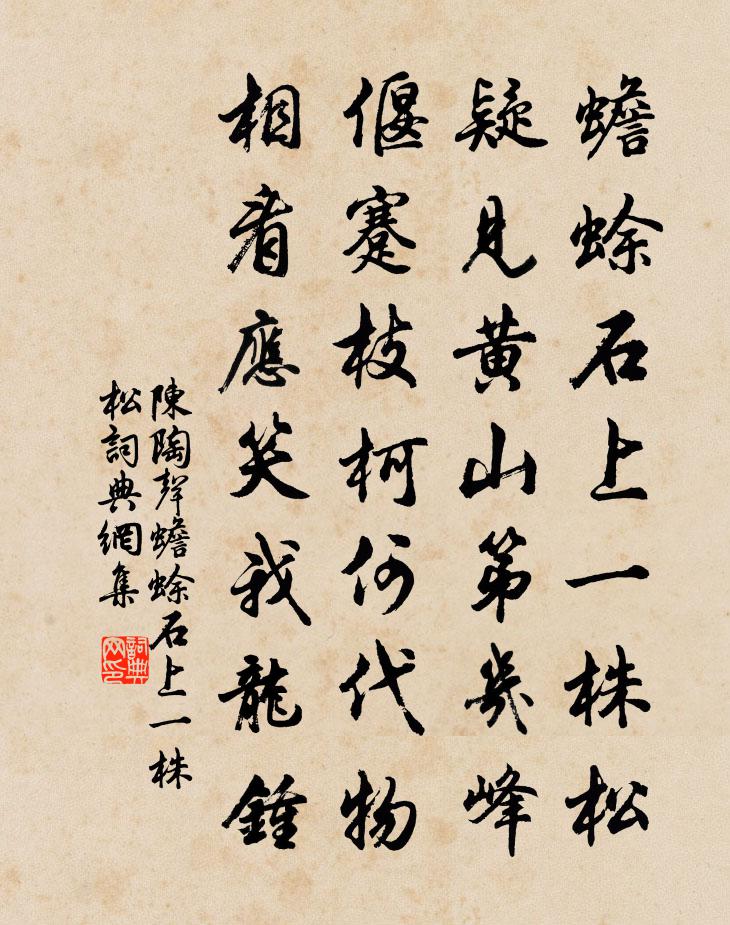 蟾蜍石上一株松
疑見黃山第幾峰
偃蹇枝柯何代物
相看應笑我龍鍾
陳陶聲蟾蜍石上一株
松詞典網集
詞典網印